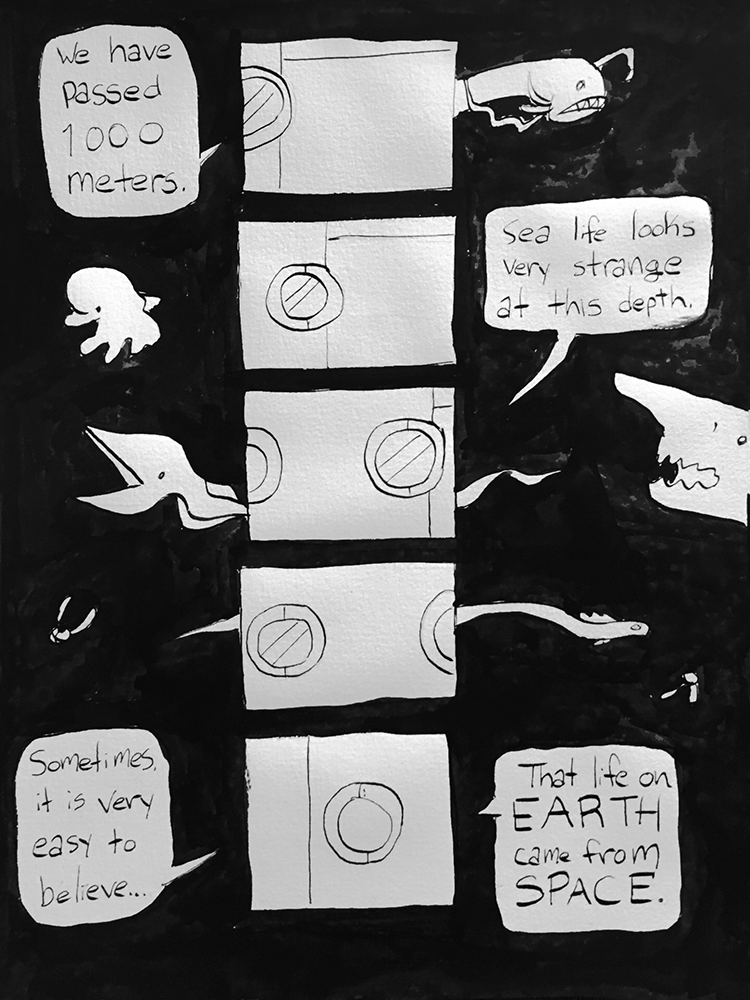 We have
passed
1000
meters.
Sea life looks
very strange
at this depth.
Sometimes,
it is very
easy to
believe...
That life on
EARTH
came from
SPACE.